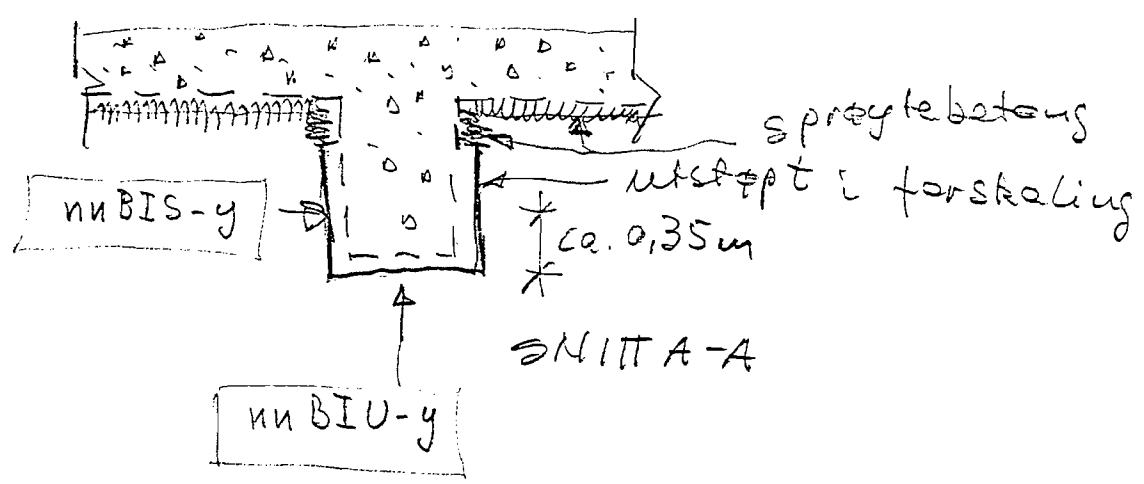 sprøytebetong
utstøpt i forskaling
nnBIS-y
ca. 0,35m
SNITT A-A
nnBIU-y